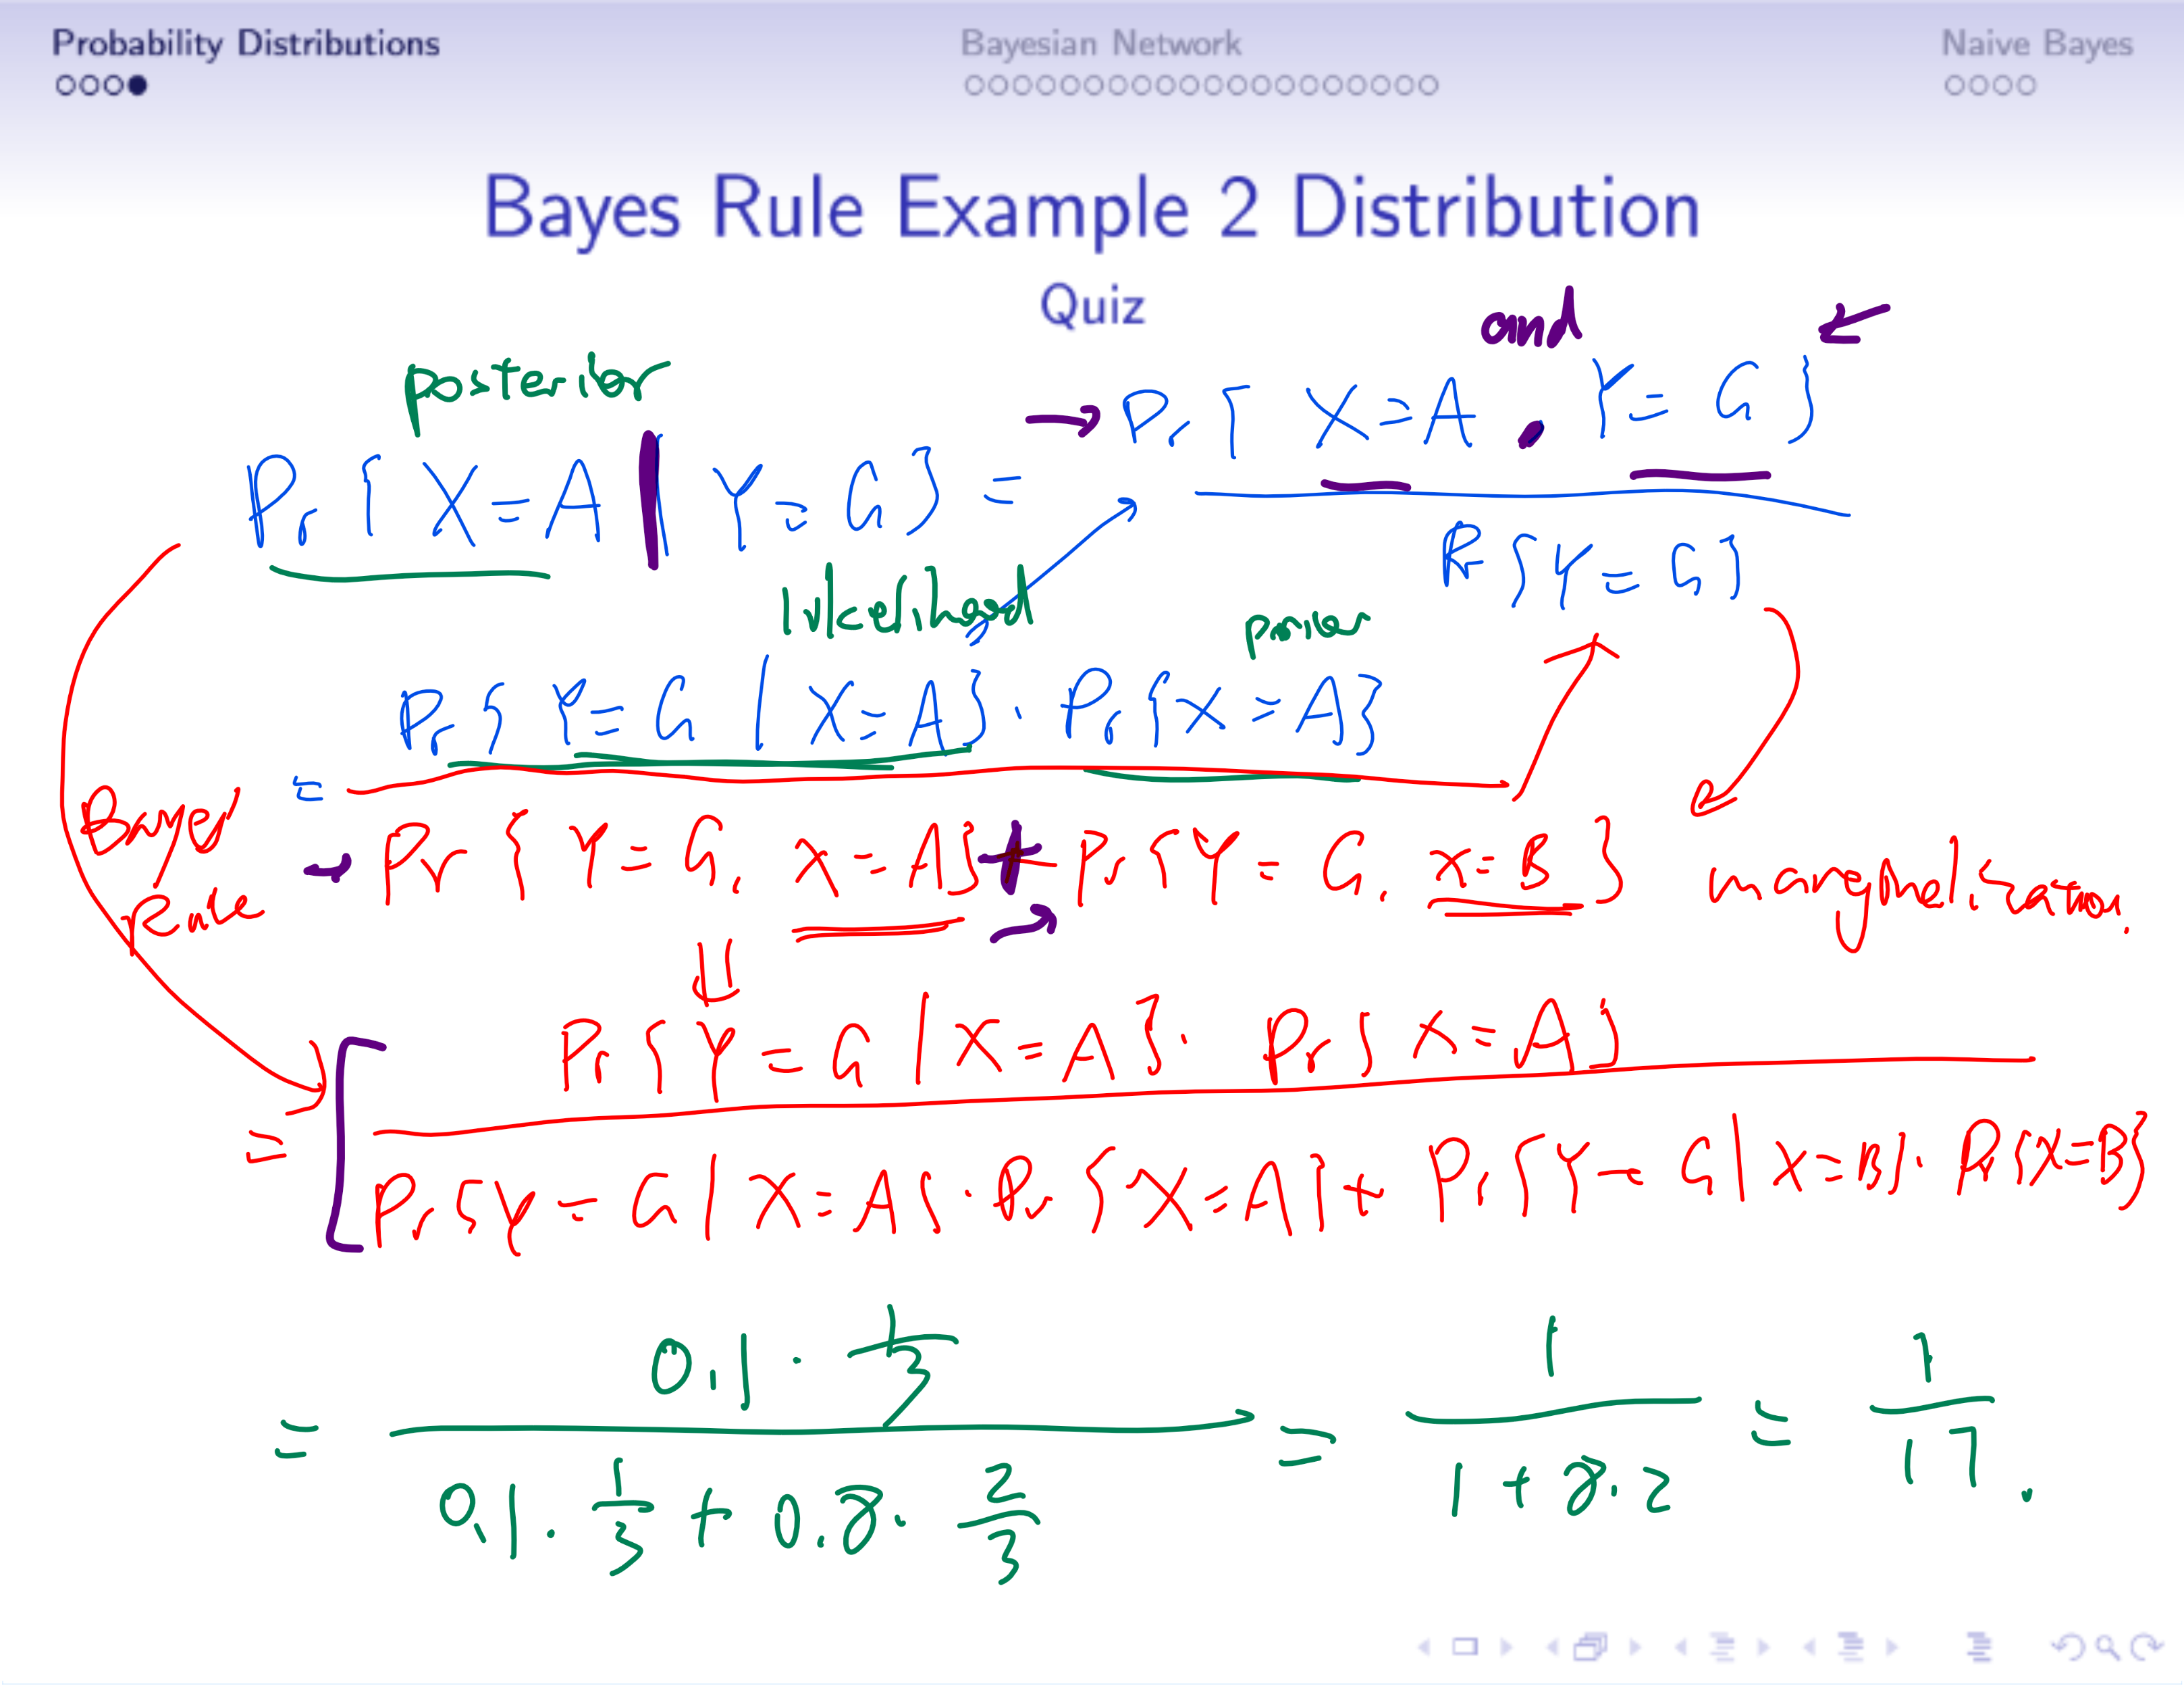 Probability Distributions Bayesian Network Naive Bayes
Bayes Rule Example 2 Distribution
Quiz
and
posterior
Pr { X = A | Y = G } = Pr { X = A , Y = G }
Pr { Y = G }
likelihood prior
= Pr { Y = G | X = A } · Pr { X = A }
Bayes Rule
Pr { Y = G, X = A } + Pr { Y = G, X = B } marginalization.
= Pr { Y = G | X = A } · Pr { X = A }
Pr { Y = G | X = A } · Pr { X = A } + Pr { Y = G | X = B } · Pr { X = B }
= 0.1 · 1/3 = 1 = 1
0.1 · 1/3 + 0.8 · 2/3 1 + 8 · 2 17.